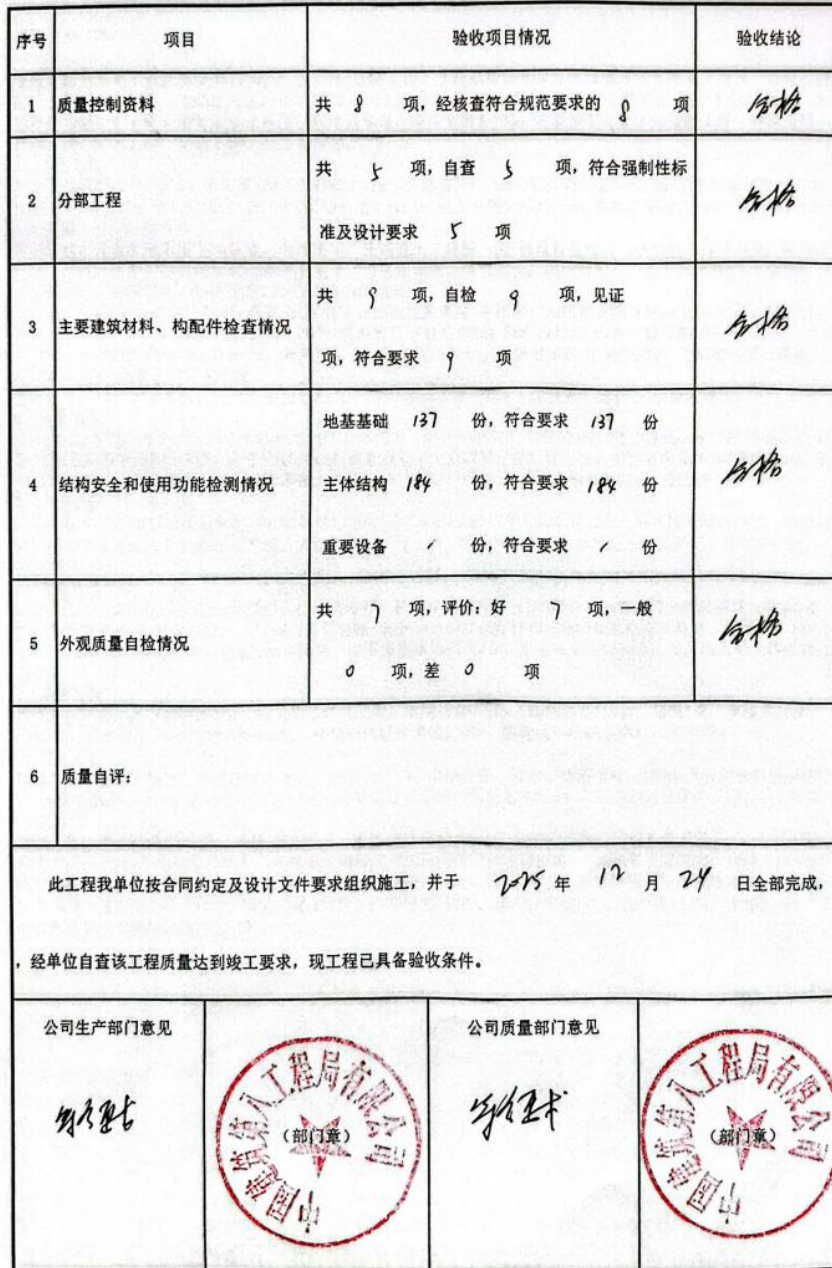 序号 项目 验收项目情况 验收结论
1 质量控制资料 共 8 项，经核查符合规范要求的 8 项 合格
2 分部工程 共 5 项，自查 5 项，符合强制性标
准及设计要求 5 项 合格
3 主要建筑材料、构配件检查情况 共 9 项，自检 9 项，见证
项，符合要求 9 项 合格
4 结构安全和使用功能检测情况 地基基础 137 份，符合要求 137 份
主体结构 184 份，符合要求 184 份 合格
重要设备 / 份，符合要求 / 份
5 外观质量自检情况 共 7 项，评价：好 7 项，一般
0 项，差 0 项 合格
6 质量自评：
此工程我单位按合同约定及设计文件要求组织施工，并于 2025 年 12 月 24 日全部完成，
，经单位自查该工程质量达到竣工要求，现工程已具备验收条件。
公司生产部门意见 公司质量部门意见
中国建筑第八工程局有限公司
（部门章）
中国建筑第八工程局有限公司
（部门章）